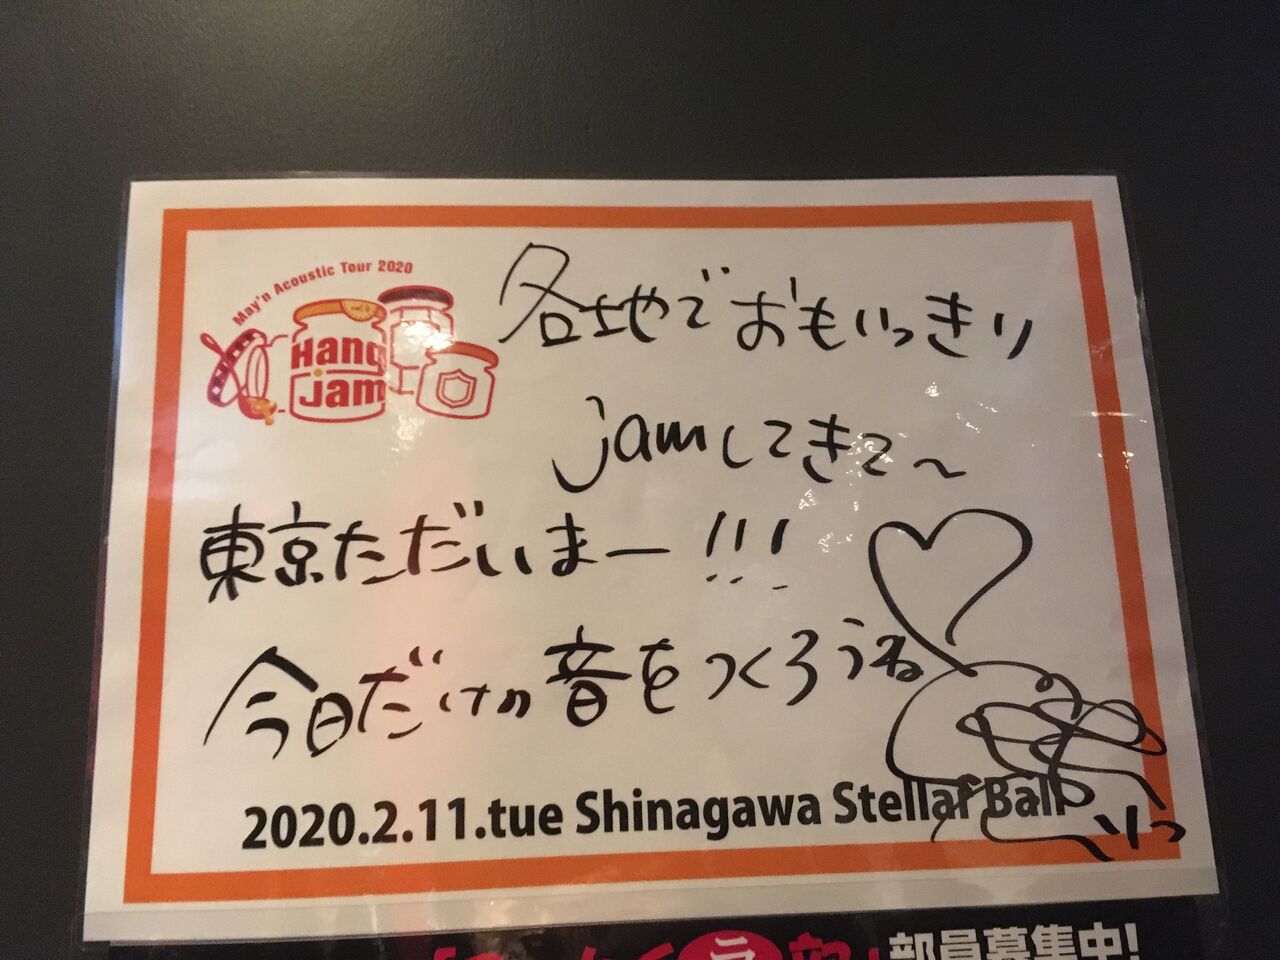 May'n Acoustic Tour 2020
Hang
jam
各地でおもいっきり
jamしてきて〜
東京ただいまー!!!
今日だけの音をつくろうね
2020.2.11.tue Shinagawa Stellar Ball
部員募集中!